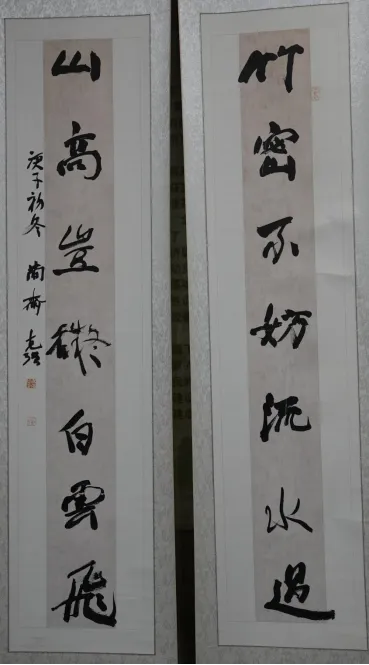 竹密不妨流水過
山高豈礙白雲飛
庚子初冬